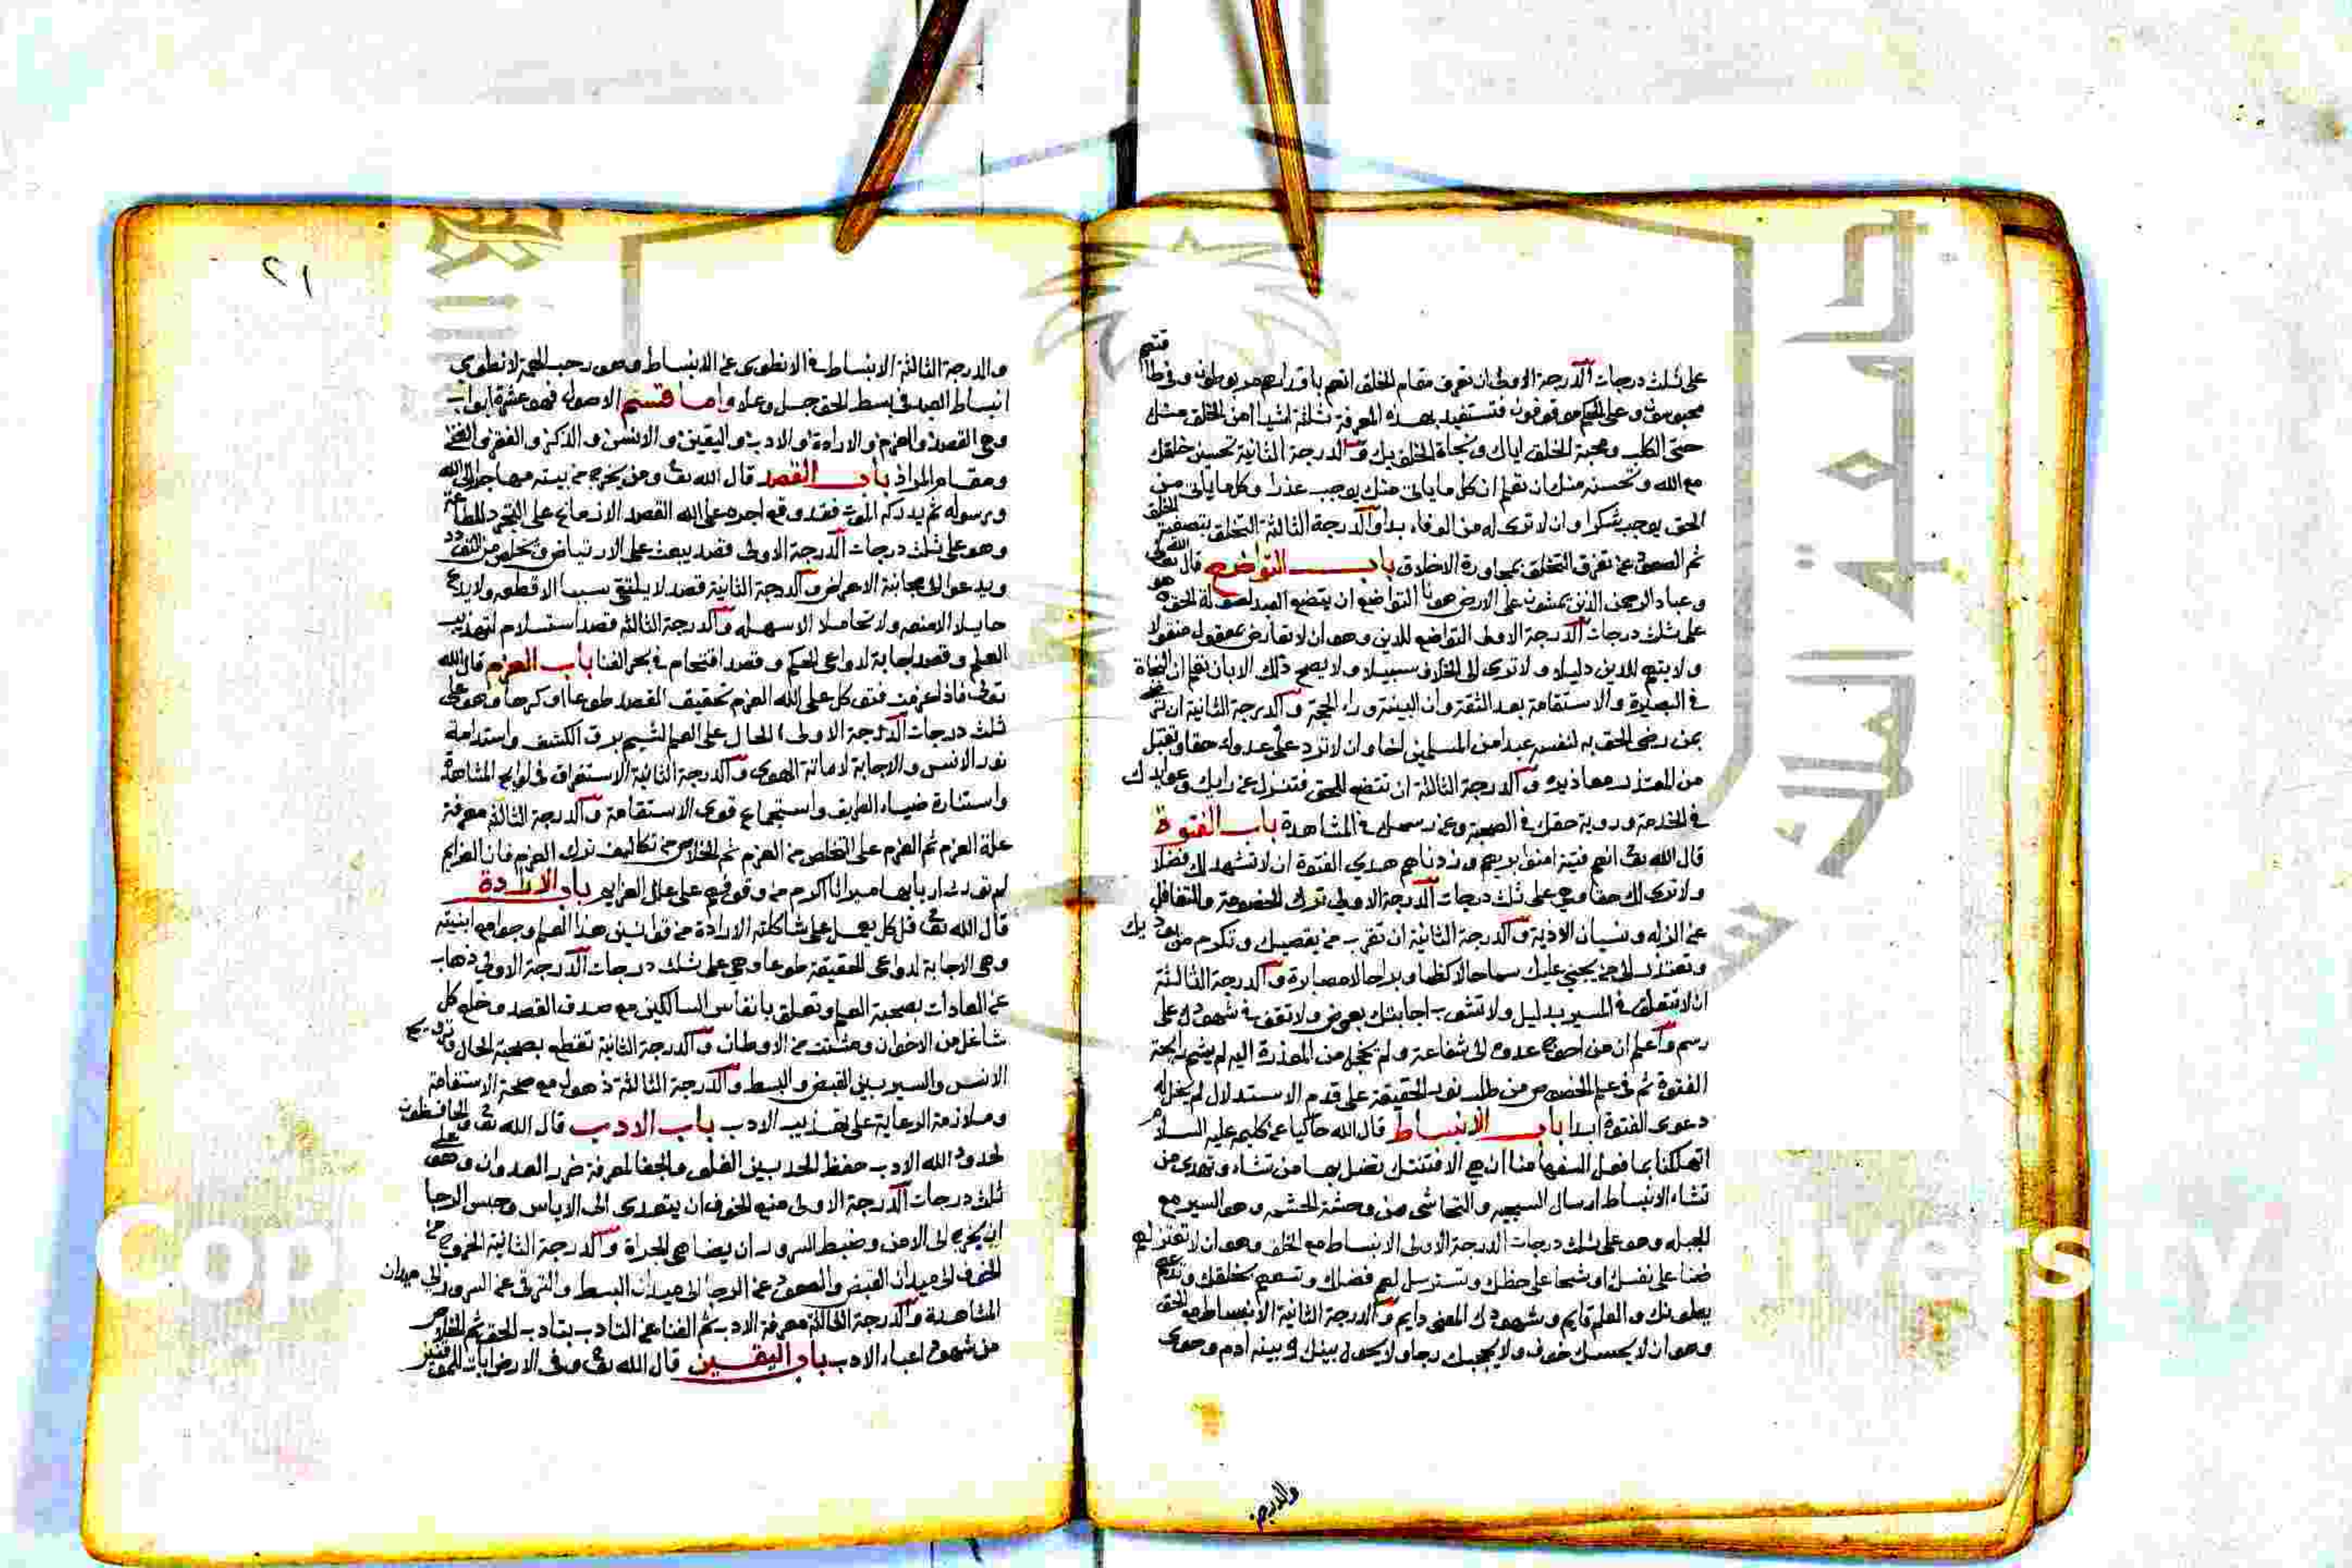 على ثلث درجات الدرجة الاولى ان تعرف مقام الخلق انهم باقدارهم مربوطون وفي طاقتهم
محبوسون وعلى الحكم موقوفون فتستفيد بهذه المعرفة ثلثة اشياء امن الخلق منك
حتى الكلب ومحبة الخلق اياك ونجاة الخلق بك والدرجة الثانية تحسين خلقك
مع الله وتحسينه منك ان تعلم ان كل ما ياتي منك يوجب عذرا وكل ما ياتي من
الحق يوجب شكرا وان لا ترى له من الوفاء بدا والدرجة الثالثة التخلق بتصفية الخلق
ثم الصعود عن تفرق التخلق بمجاورة الاخلاق باب التواضع قال الله تعالى
وعباد الرحمن الذين يمشون على الارض هونا التواضع ان يتضع العبد لصولة الحق وهو
على ثلث درجات الدرجة الاولى التواضع للدين وهو ان لا تعارض بمعقول منقولا
ولا يتهم للدين دليلا ولا ترى الى الخلاف سبيلا ولا يصح ذلك الا بان تعلم ان النجاة
في البصيرة والاستقامة بعد الثقة وان البينة وراء الحجة والدرجة الثانية ان ترضى
بمن رضى الحق به لنفسه عبدا من المسلمين اخا وان لا ترد على عدوك حقا وتقبل
من المعتذر معاذيره والدرجة الثالثة ان تتضع للحق فتنزل عن رايك وعوايدك
في الخدمة وروية حقك في الصحبة وعن رسمك في المشاهدة باب الفتوة
قال الله تعا انهم فتية امنوا بربهم وزدناهم هدى الفتوة ان لا تشهد لك فضلا
ولا ترى لك حقا وهي على ثلث درجات الدرجة الاولى ترك الخصومة والتغافل
عن الزلة ونسيان الاذية والدرجة الثانية ان تقرب من يقصيك وتكرم من يوذيك
وتعتذر الى من يجني عليك سماحا لا كظما وبراحا لا مصابرة والدرجة الثالثة
ان لا تتعلق في المسير بدليل ولا تشوب اجابتك بعوض ولا تقف في شهودك على
رسم واعلم ان من احوج عدوه الى شفاعة ولم يخجل من المعذرة اليه لم يشم رايحة
الفتوة ثم في علم الخصوص من طلب نور الحقيقة على قدم الاستدلال لم يحل له
دعوى الفتوة ابدا باب الانبساط قال الله حاكيا عن كليمه عليه السلام
اتهلكنا بما فعل السفها منا ان هي الا فتنتك تضل بها من تشاء وتهدي من
تشاء الانبساط ارسال السجية والتحاشي من وحشة الحشمة وهو السير مع
الجبلة وهو على ثلث درجات الدرجة الاولى الانبساط مع الخلق وهو ان لا تعتزلهم
ضنا على نفسك او شحا على حظك وتسترسل لهم فضلك وتسعهم بخلقك وتدعهم
يطونك والعلم قايم وشهودك المعنى دايم والدرجة الثانية الانبساط مع الحق
وهو ان لا يحبسك خوف ولا يحجبك رجاء ولا يحول بينك وبينه ادم وحوى
والدرجة
١٢
والدرجة الثالثة الانبساط في الانطوى عن الانبساط وهو رحب الهمة لانطوى
انبساط العبد في بسط الحق جل وعلا واما قسم الاصول فهو عشرة ابواب
وهي القصد والعزم والارادة والادب واليقين والانس والذكر والفقر والغنى
ومقام المراد باب القصد قال الله تعا ومن يخرج من بيته مهاجرا الى الله
ورسوله ثم يدركه الموت فقد وقع اجره على الله القصد الازماع على التجرد للطاعة
وهو على ثلث درجات الدرجة الاولى قصد يبعث على الارتياض ويخلص من التردد
ويدعوا الى مجانبة الاعراض والدرجة الثانية قصد لا يلتقي سببا الا قطعه ولا يدع
حايلا الا منعه ولا تحاملا الا سهله والدرجة الثالثة قصد استسلام لتهذيب
العلم وقصد اجابة لدواعى الحكم وقصد اقتحام في بحر الفنا باب العزم قال الله
تعالى فاذا عزمت فتوكل على الله العزم تحقيق القصد طوعا او كرها وهو على
ثلث درجات الدرجة الاولى اباء الحال على العلم لشيم برق الكشف واستدامة
نور الانس والاجابة لاماتة الهوى والدرجة الثانية الاستغراق في لوايح المشاهدة
واستنارة ضياء الطريق واستجماع قوى الاستقامة والدرجة الثالثة معرفة
علة العزم ثم العزم على التخلص من العزم ثم الخلاص من تكاليف ترك العزم فان العزايم
لم تورث اربابها ميراثا اكرم من وقوفهم على علل العزايم باب الارادة
قال الله تعا قل كل يعمل على شاكلته الارادة من قوانين هذا العلم وجوامع ابنيته
وهي الاجابة لدواعى الحقيقة طوعا وهي على ثلث درجات الدرجة الاولى ذهاب
عن العادات بصحبة العلم وتعلق بانفاس السالكين مع صدق القصد وخلع كل
شاغل من الاخوان ومشتت من الاوطان والدرجة الثانية تقطع بصحبة الحال وترويح
الانس والسير بين القبض والبسط والدرجة الثالثة ذهول مع صحة الاستقامة
وملازمة الرعاية على تهذيب الادب باب الادب قال الله تعا والحافظون
لحدود الله الادب حفظ الحد بين الغلو والجفا لمعرفة ضرر العدوان وهو على
ثلث درجات الدرجة الاولى منع الخوف ان يتعدى الى الاياس وحبس الرجا
ان يخرج الى الامن وضبط السرور ان يضاهي الجراة والدرجة الثانية الخروج من
الخوف الى ميدان القبض والصعود عن الرجا الى ميدان البسط والترقى عن السرور الى ميدان
المشاهدة والدرجة الثالثة معرفة الادب ثم الفنا عن التادب بتادب الحق ثم الخلاص
من شهود اعباء الادب باب اليقين قال الله تعا وفى الارض ايات للموقنين